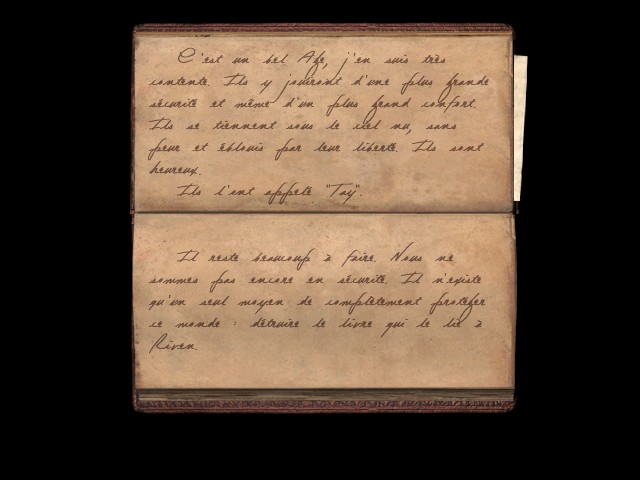 C'est un bel Age, j'en suis très
contente. Ils y jouiront d'une plus grande
sécurité et même d'un plus grand confort.
Ils se tiennent sous le ciel nu, sans
peur et éblouis par leur liberté. Ils sont
heureux.
Ils l'ont appelé "Tay".
Il reste beaucoup à faire. Nous ne
sommes pas encore en sécurité. Il n'existe
qu'un seul moyen de complètement protéger
ce monde : détruire le livre qui le lie à
Riven.